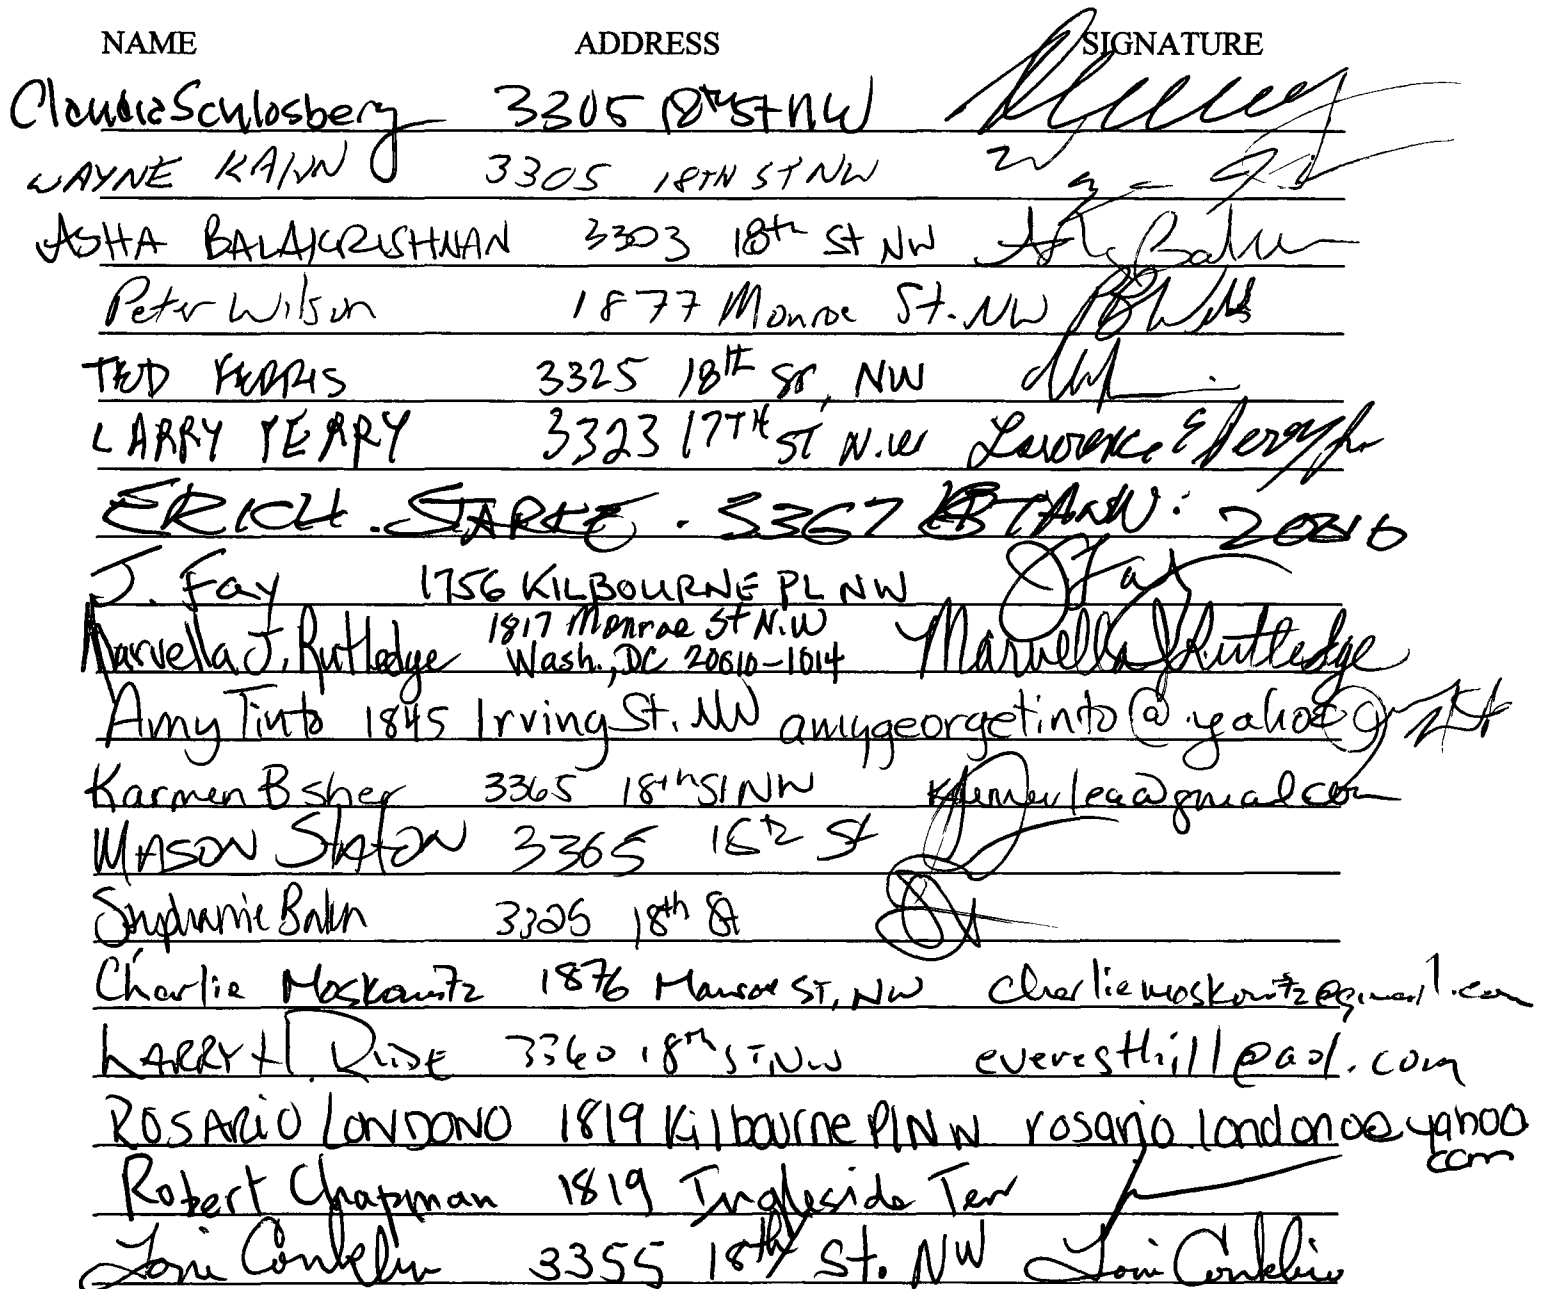 NAME ADDRESS SIGNATURE
Claudia Schlosberg 3305 18th St NW
WAYNE KAHN 3305 18TH ST NW
ASHA BALAKRISHNAN 3303 18th St NW
Peter Wilson 1877 Monroe St. NW
TED FERRIS 3325 18th ST, NW
LARRY PERRY 3323 17TH ST N.W Lawrence E Perry Jr
ERICH. STARKE. 3367
J. Fay 1756 KILBOURNE PL NW J Fay
Marvella J. Rutledge 1817 Monroe St N.W Marvella J Rutledge
Wash., DC 20010-1014
Amy Tinto 1845 Irving St. NW amygeorgetinto@yahoo
Karmen 3365 18th St NW
MASON STATON 3365 18th St
Stephanie 3325 18th St
Charlie Moskowitz 1876 Monroe ST, NW charliemoskowitz@gmail.com
LARRY H. 3360 18th ST NW everesthill@aol.com
ROSARIO LONDONO 1819 Kilbourne Pl NW rosario.londono@yahoo
com
Robert Chapman 1819 Ingleside Terr
Toni Conklin 3355 18th St. NW Toni Conklin